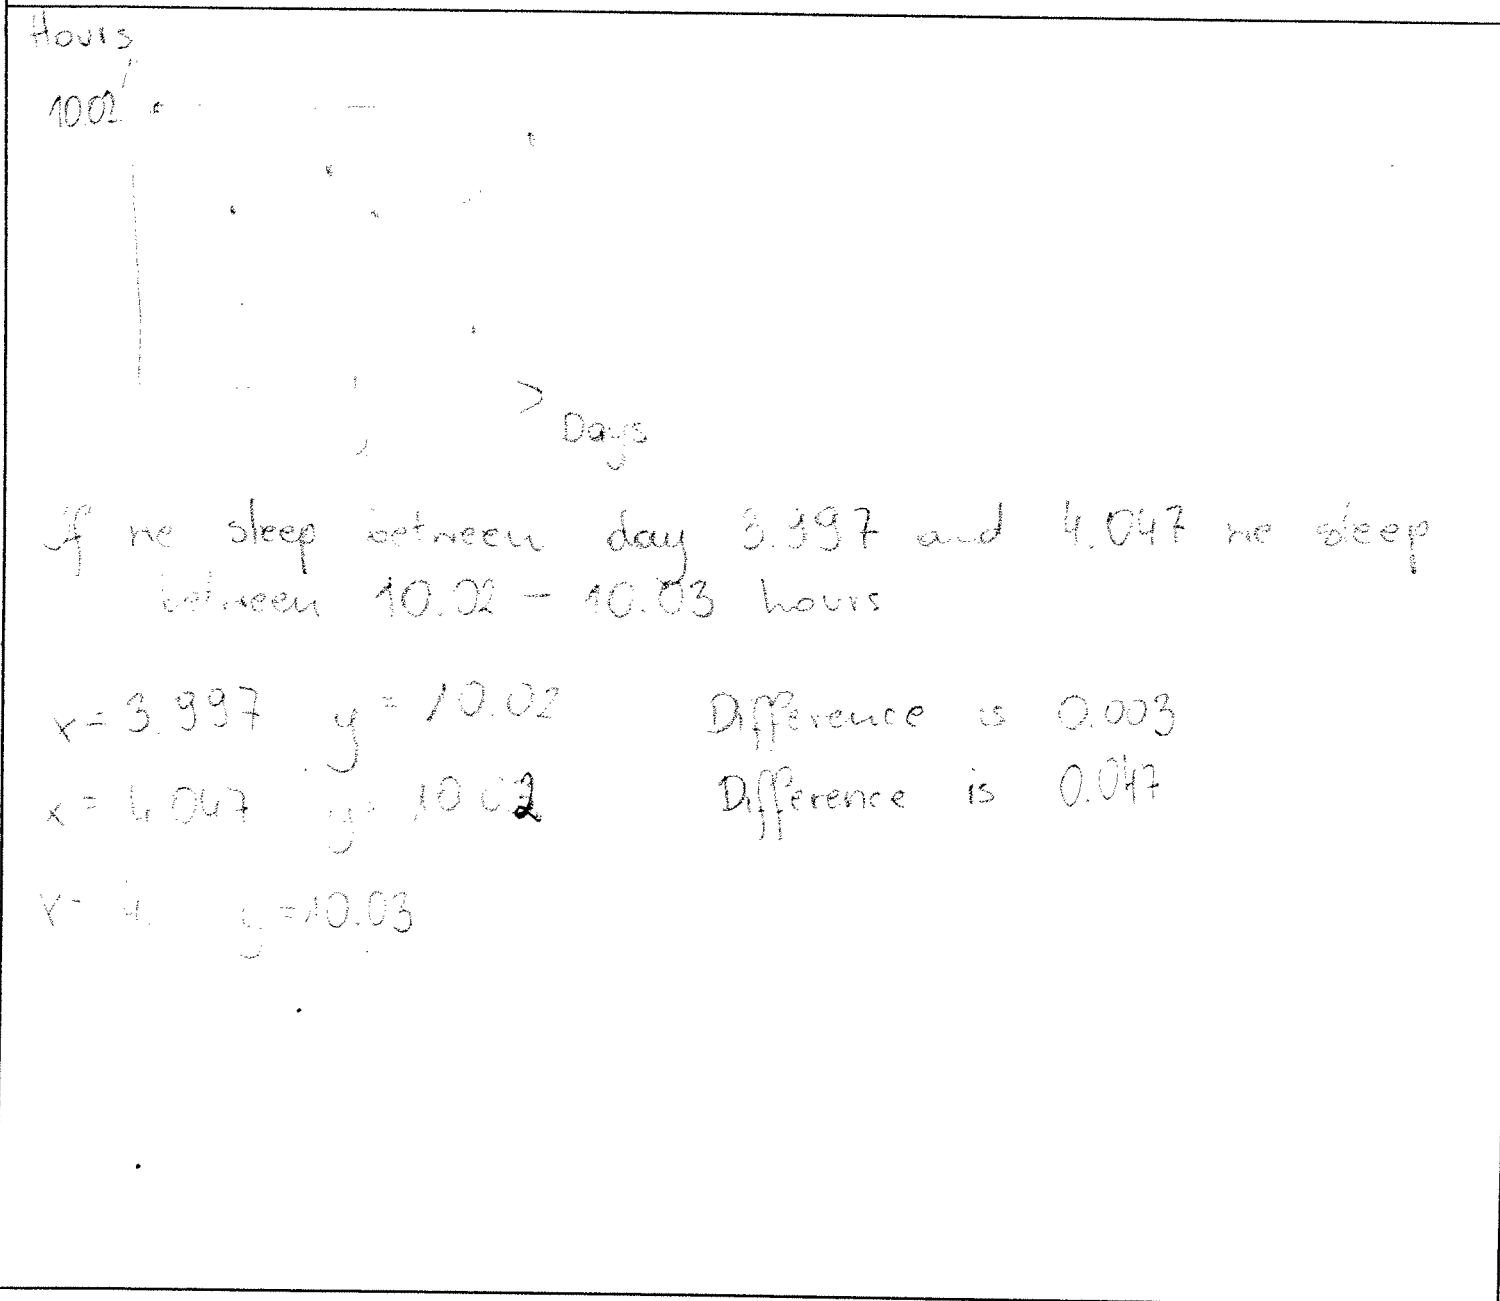 Hours
10.02
Days
If we sleep between day 3.997 and 4.047 we sleep
between 10.02 - 10.03 hours
x = 3.997 y = 10.02 Difference is 0.003
x = 4.047 y = 10.02 Difference is 0.047
x = 4. y = 10.03